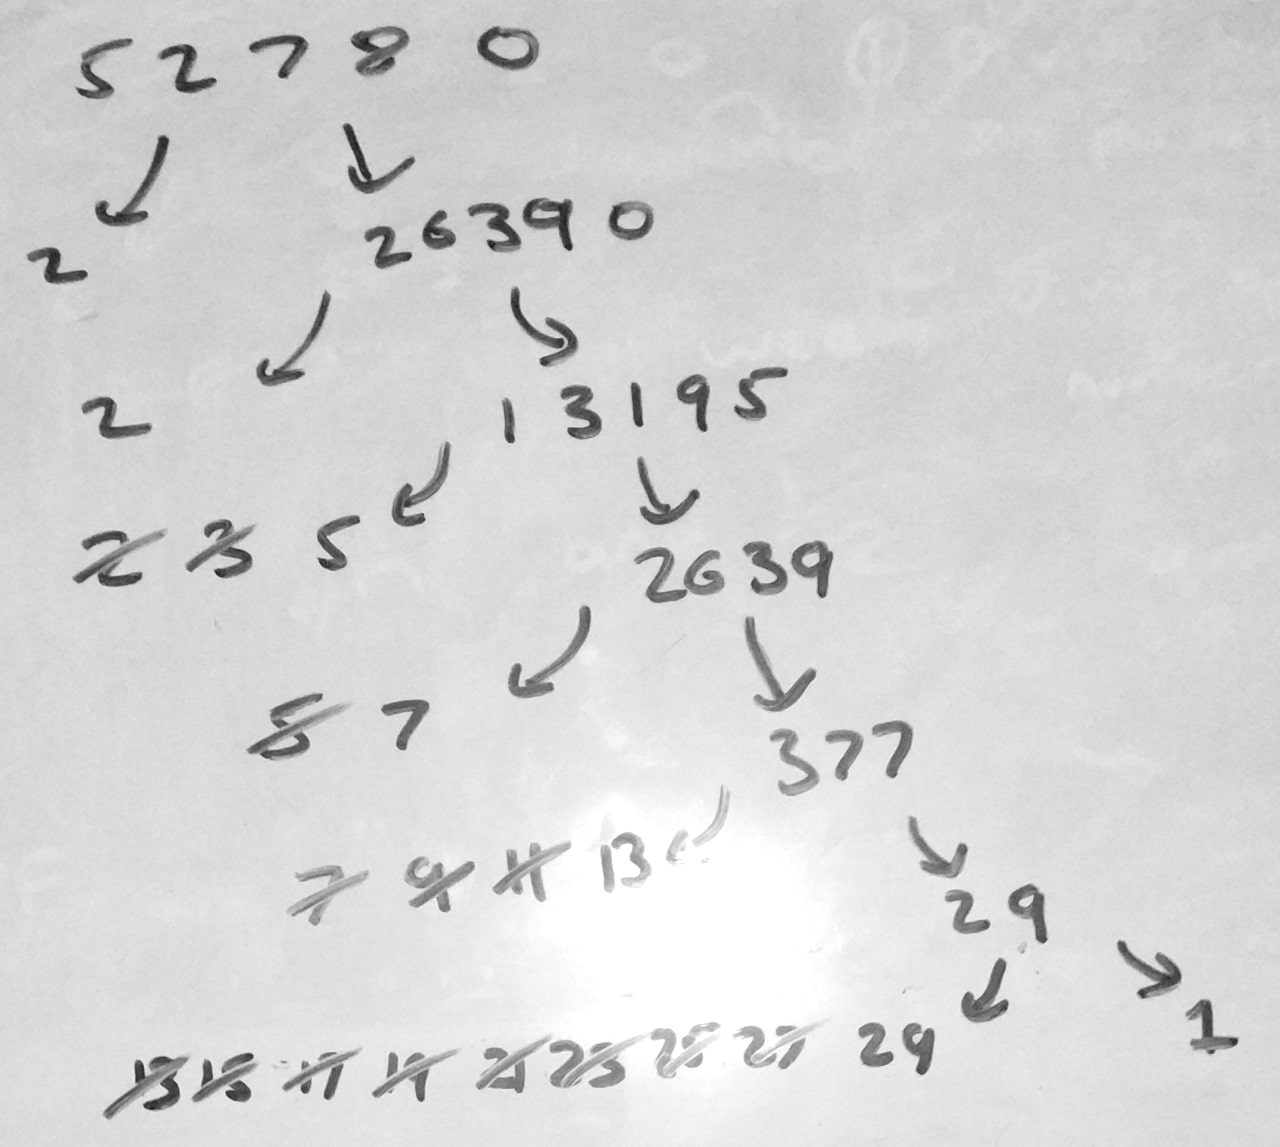 52780
2 26390
2 13195
2 3 5 2639
5 7 377
7 9 11 13 29
13 15 17 19 21 23 25 27 29 1